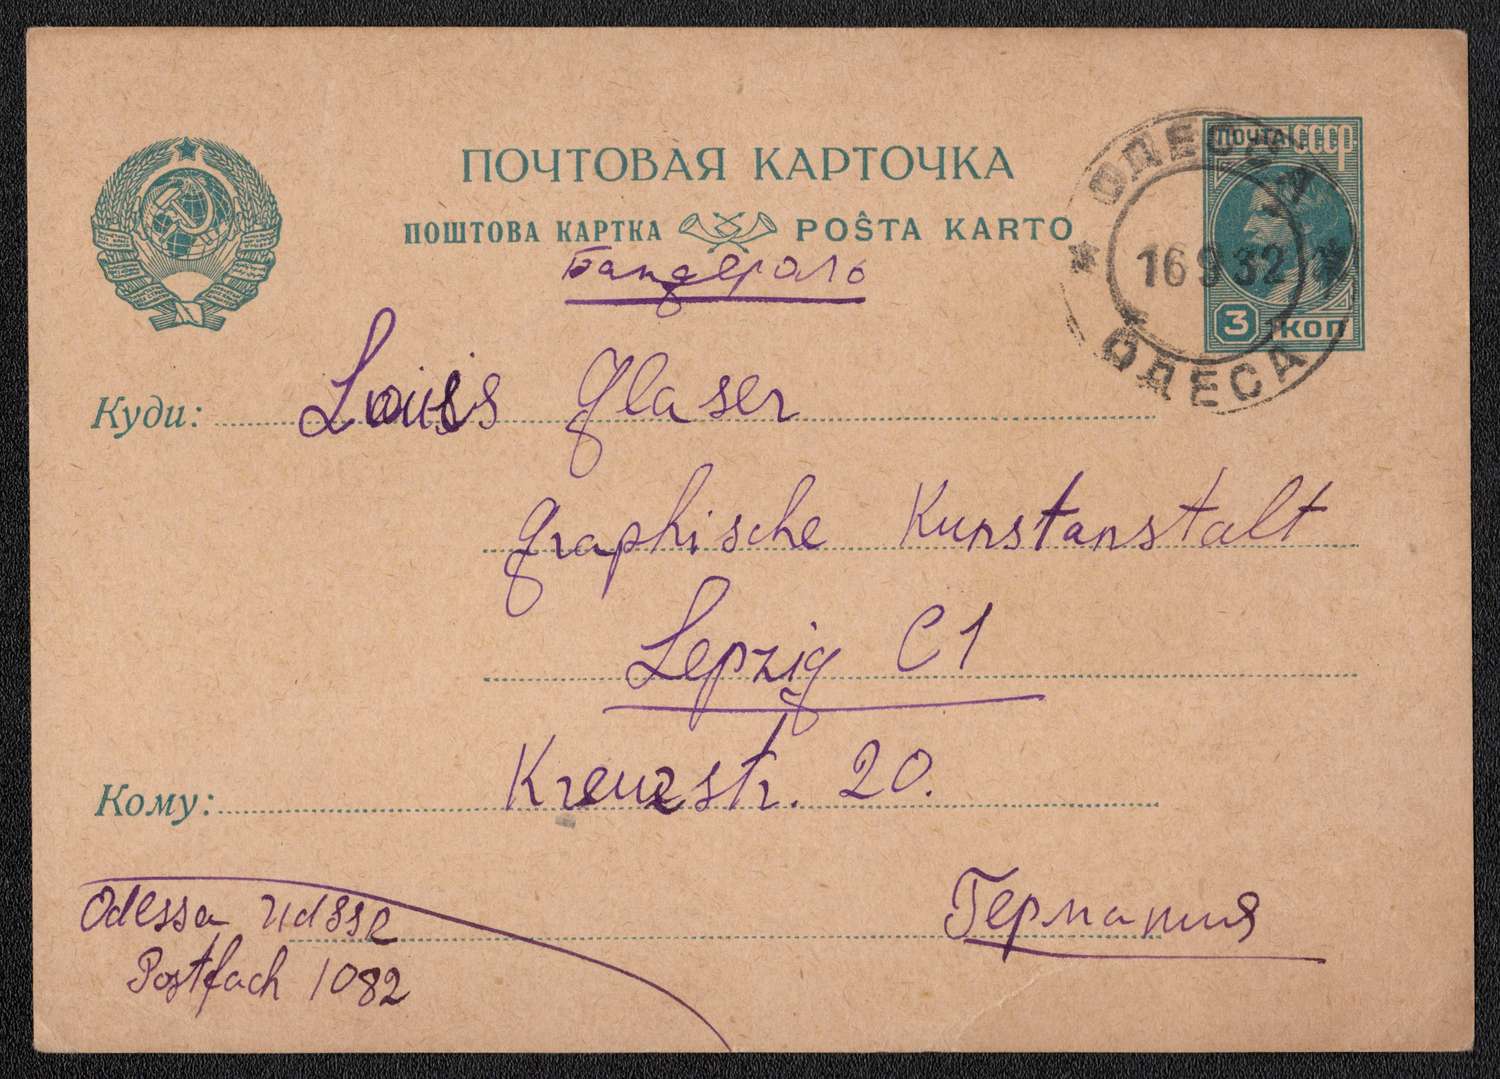 ПОЧТОВАЯ КАРТОЧКА
ПОШТОВА КАРТКА POŜTA KARTO
Бандероль
ПОЧТА СССР
3 КОП
ОДЕССА
16 9 32
ОДЕСА
Куди: Louis Glaser
graphische Kunstanstalt
Lepzig C1
Кому: Kreuzstr. 20.
Германия
Odessa UdSSR
Postfach 1082